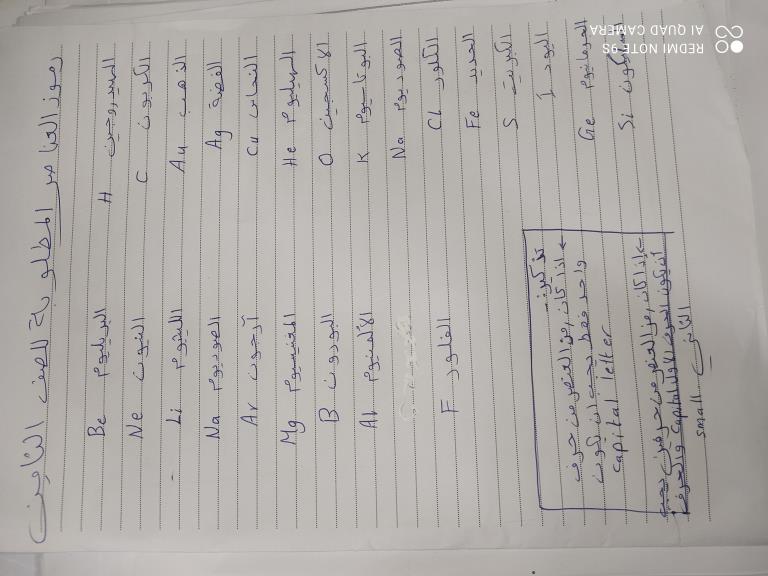 رموز العناصر المطلوبة للصف الثامن
الهيدروجين H البريليوم Be
الكربون C النيون Ne
الذهب Au الليثيوم Li
الفضة Ag الصوديوم Na
النحاس Cu آرجون Ar
الهيليوم He المغنيسيوم Mg
الاكسجين O البورون B
البوتاسيوم K الألمنيوم Al
الصوديوم Na
الكلور Cl الفلور F
الحديد Fe
الكبريت S
اليود I
الجرمانيوم Ge
Si
تذكير:
← إذا كان رمز العنصر من حرف
واحد فقط يجب أن يكون
capital letter
← إذا كان رمز العنصر من حرفين يجب
أن يكون الحرف الأول capital والحرف
الثاني small
REDMI NOTE 9S
AI QUAD CAMERA